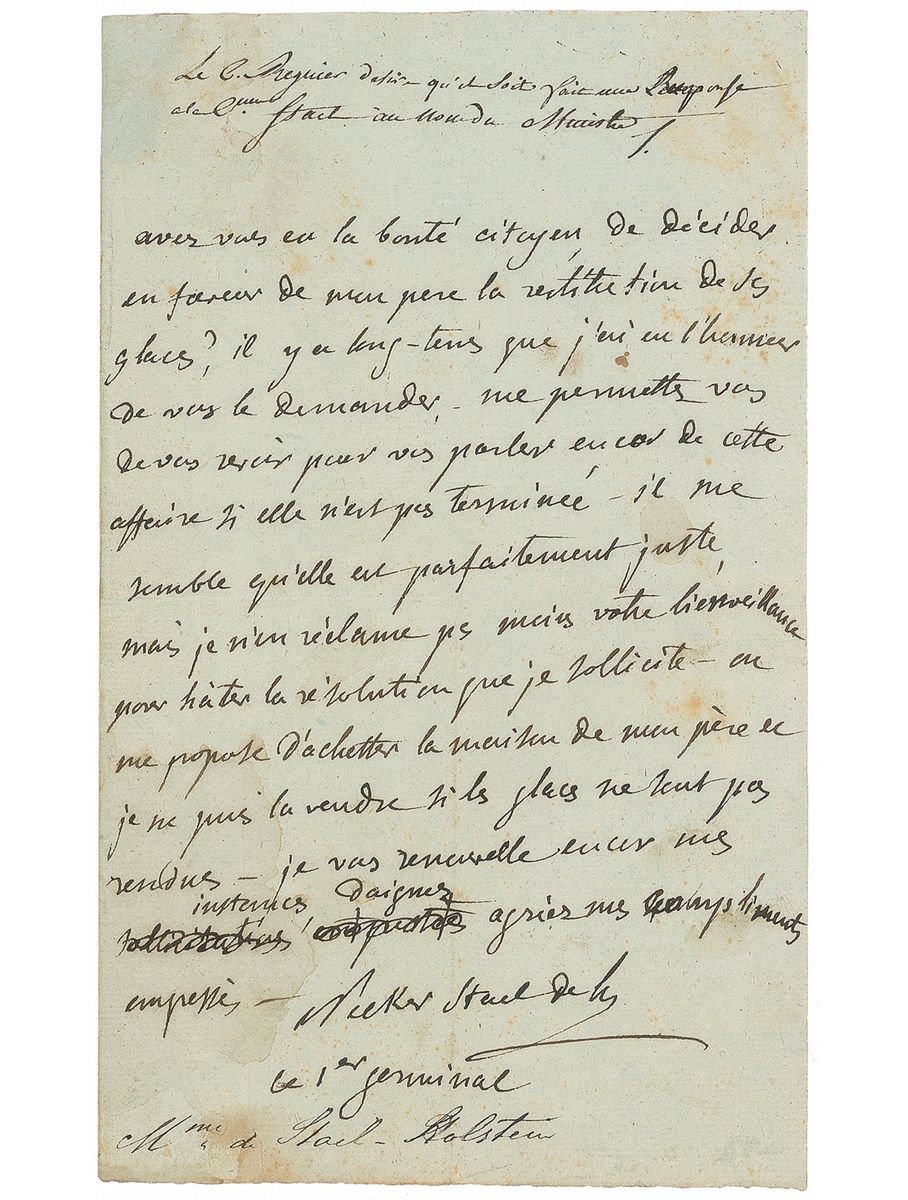 Le C. Regnier desire qu'il soit fait une Reponse
a la C.enne Stael au nom du Ministre
avez vous eu la bonté citoyen, de décider
en faveur de mon pere la restitution de ses
glaces? il y a long-tems que j'ai eu l'honneur
de vous le demander, me permettez vous
de vous revoir pour vous parler encor de cette
affaire si elle n'est pas terminée – il me
semble qu'elle est parfaitement juste,
mais je n'en réclame pas moins votre bienveillance
pour hâter la résolution que je sollicite – on
me propose d'achetter la maison de mon père et
je ne puis la vendre si les glaces ne sont pas
rendues – je vous renouvelle encor mes
instances daignez
sollicitations agréez mes compliments
empressés –
Necker Stael de h
ce 1er germinal
Mme de Stael-Holstein